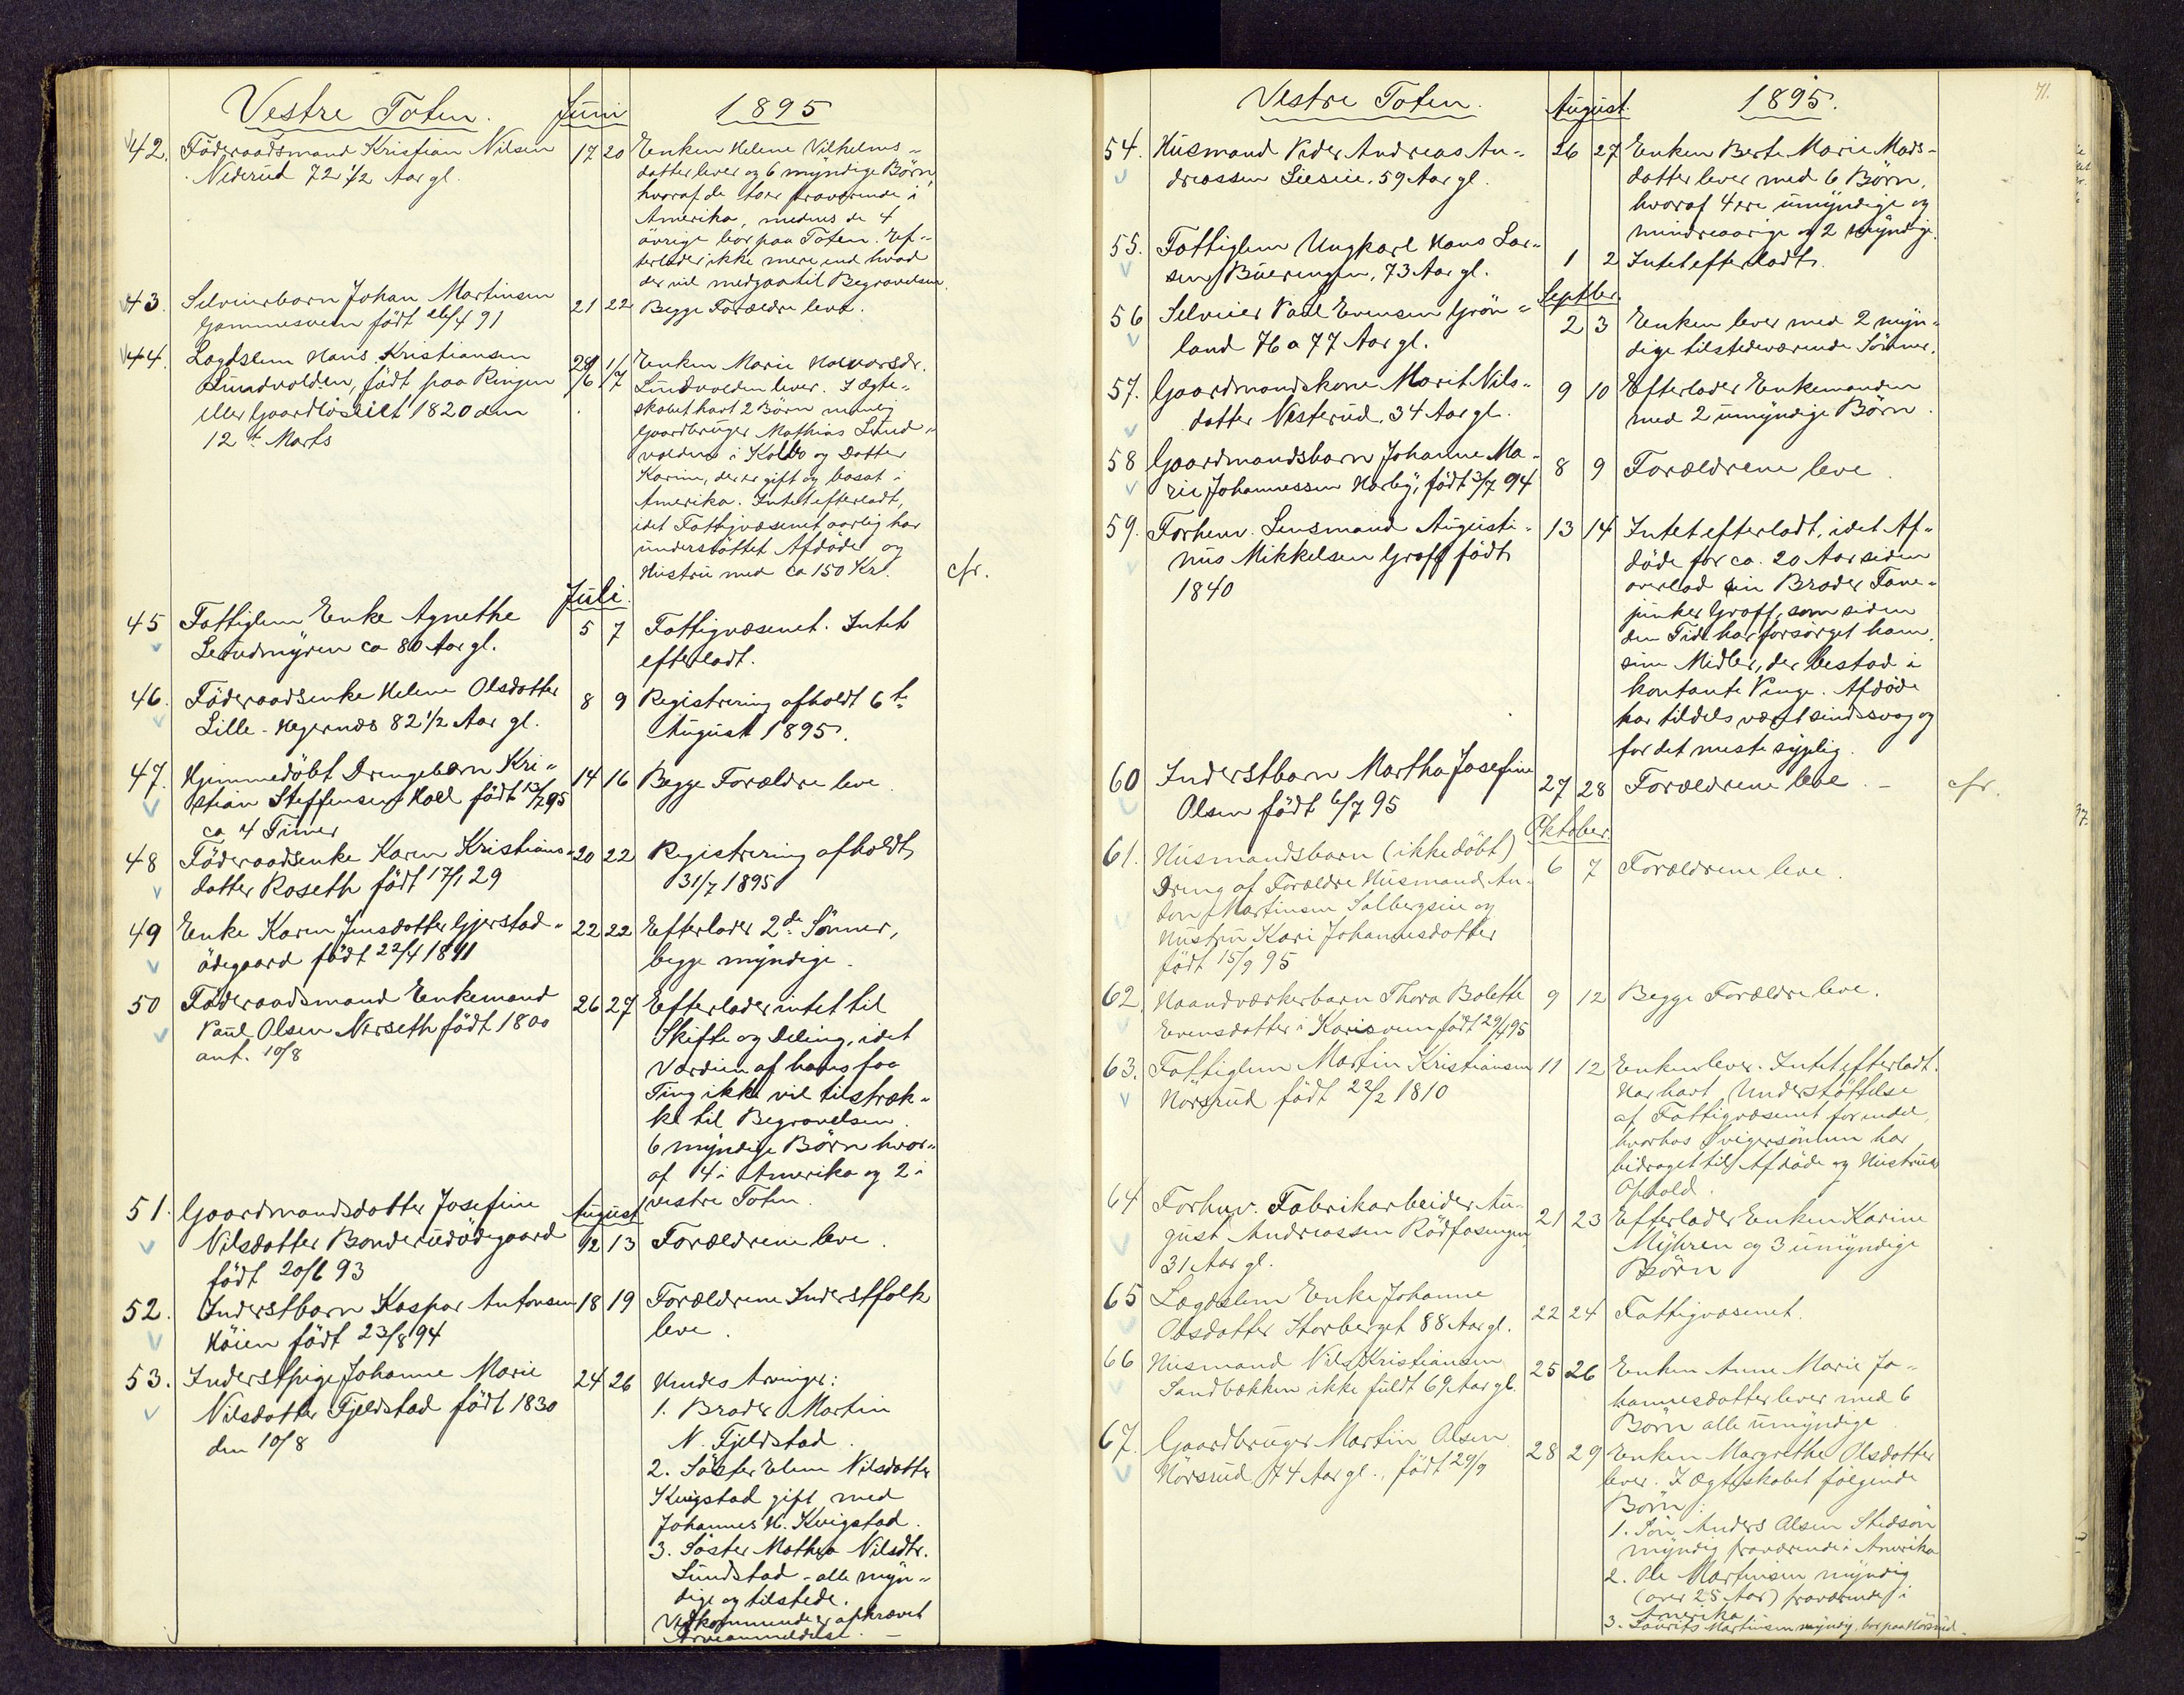 Vestre Toten. Juni 1895
42. Föderaadsmand Kristian Nilsen 17 20 Enken Helene Vilhelms-
Nederud 72 1/2 Aar gl. datter lever og 6 myndige Börn,
hvoraf de toer fraværende i
Amerika, medens de 4
övrige bor paa Toten. Ef-
terlader ikke mere end hvad
der vil medgaa til Begravelsen.
43. Selveierbarn Johan Martinsen 21 22 Begge Forældre leve.
Gammesveen født 26/4 91
44. Lægdslem Hans Kristiansen 29/6 1/7 Enken Marie Halvorsdr.
Lundvolden, födt paa Ringen Lundvolden lever. I Ægte-
eller Gaardlöseiet 1820 den skabet havt 2 Börn nemlig
12te Marts Gaardbruger Mathias Lund-
volden i Kolbo og Datter
Karine, der er gift og bosat i
Amerika. Intet efterladt,
idet Fattigvæsenet aarlig har
understöttet Afdöde og
Hustru med ca 150 Kr. cfr.
Juli.
45 Fattiglem Enke Agnethe 5 7 Fattigvæsenet. Intet
myren ca 80 Aar gl. efterladt.
46. Föderaadsenke Helene Olsdatter 8 9 Registrering afholdt 6te
Lille-Hegernæs 82 1/2 Aar gl. August 1895.
47. Hjemmedöbt Drengebarn Kri- 14 16 Begge Forældre leve
stian Steffensen Hoel födt 13/7 95
ca 4 Timer
48 Föderaadsenke Karen Kristians- 20 22 Registrering afholdt
datter Roseth födt 17/1 29 31/7 1895
49 Enke Karen Jensdatter Gjerstad- 22 22 Efterlader 2de Sönner,
ödegaard födt 22/4 1811 begge myndige.
50 Föderaadsmand Enkemand 26 27 Efterlader intet til
Paul Olsen Nerseth födt 1800 Skifte og Deling, idet
ant. 10/8 Værdien af hans faa
Ting ikke vil tilstræk-
ke til Begravelsen.
6 myndige Börn hvor-
af 4 i Amerika og 2 i
vestre Toten.
51. Gaardmandsdatter Josefine August
Nilsdatter Bonderudödegaard 12 13 Forældrene leve.
födt 20/6 93
52. Inderstbarn Kaspar Antonsen 18 19 Forældrene Inderstfolk
Höien födt 23/8 94 leve.
53. Inderstpige Johanne Marie 24 26 Hendes Arvinger:
Nilsdatter Fjeldstad födt 1830 1. Broder Martin
den 10/8 N. Fjeldstad.
2. Söster Elen Nilsdatter
Kvigstad gift med
Johannes H. Kvigstad.
3. Söster Mathea Nilsdtr.
Sundstad - alle myn-
dige og tilstede.
Vedkommende er afkrævet
Arveanmeldelse. -
71.
Vestre Toten. August. 1895.
54. Husmand Peder Andreas An- 26 27 Enken Berte Marie Mads-
dreassen 59 Aar gl. datter lever med 6 Börn,
hvoraf 4 ere umyndige og
mindreaarige og 2 myndige.
55. Fattiglem Ungkarl Hans Lar- 1 2 Intet efterladt.
sen Bueringen, 73 Aar gl.
Septbr.
56 Selveier Paul Evensen Grön- 2 3 Enken lever med 2 myn-
land 76 a 77 Aar gl. dige tilstedeværende Sönner.
57. Gaardmandskone Marit Nils- 9 10 Efterlader Enkemanden
datter Vesterud, 34 Aar gl. med 2 umyndige Börn.
58 Gaardmandsbarn Johanne Ma- 8 9 Forældrene leve.
rie Johannessen Hørby, födt 3/7 94
59. Forhenv. Lensmand Augusti- 13 14 Intet efterladt, idet Af-
nus Mikkelsen Graff födt döde for ca. 20 Aar siden
1840 overlod sin Broder Fane-
junker Graff, som siden
den Tid har forsörget ham,
sine Midler, der bestod i
kontante Penge. Afdöde
har tildels været sindssvag og
for det meste sygelig.
60 Inderstbarn Martha Josefine 27 28 Forældrene leve. - cfr.
Olsen födt 6/7 95
Oktober.
61. Husmandsbarn (ikke döbt) 6 7 Forældrene leve.
Dreng af Forældre Husmand An-
ton Martinsen Solbergseie og
Hustru Kari Johannesdatter
födt 15/9 95
62. Haandværkerbarn Thora Bolette 9 12 Begge Forældre leve.
Evensdatter i Karisveen födt 29/4 95
63. Fattiglem Martin Kristiansen 11 12 Enken lever. Intet efterladt.
Hörsrud födt 22/2 1810 Har havt Understöttelse
af Fattigvæsenet for endel,
hvorhos Svigersönnen har
bidraget til Afdöde og Hustrus
Ophold.
64 Forhnv. Fabrikarbeider Au- 21 23 Efterlader Enken Karine
gust Andreassen Rödfosengen, Myhren og 3 umyndige
31 Aar gl. Börn
65 Lægdslem Enke Johanne 22 24 Fattigvæsenet.
Olsdatter Storberget 88 Aar gl.
66 Husmand Nils Kristiansen 25 26 Enken Anne Marie Jo-
Sandbækken ikke fuldt 69 Aar gl. hannesdatter lever med 6
Börn alle umyndige
67. Gaardbruger Martin Olsen 28 29 Enken Margrethe Olsdatter
Hörsrud 74 Aar gl., födt 29/9 lever. I Ægteskabet fölgende
Börn:
1. Sön Anders Olsen Stedsön
myndig fraværende i Amerika
2. Ole Martinsen myndig
(over 25 Aar) fraværende i
Amerika
3. Laurits Martinsen myndig, bor paa Hörsrud.